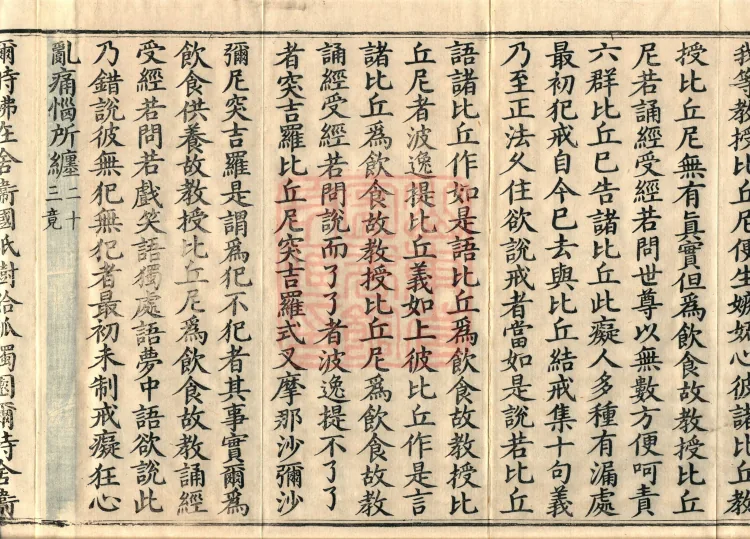 我等教授比丘尼便生嫉妬心彼諸比丘教
授比丘尼無有眞實但爲飲食故教授比丘
尼若誦經受經若問世尊以無數方便呵責
六群比丘已告諸比丘此癡人多種有漏處
最初犯戒自今已去與比丘結戒集十句義
乃至正法久住欲說戒者當如是說若比丘
語諸比丘作如是語比丘爲飲食故教授比
丘尼者波逸提比丘義如上彼比丘作是言
諸比丘爲飲食故教授比丘尼爲飲食故教
誦經受經若問說而了了者波逸提不了了
者突吉羅比丘尼突吉羅式叉摩那沙彌沙
彌尼突吉羅是謂爲犯不犯者其事實爾爲
飲食供養故教授比丘尼爲飲食故教誦經
受經若問若戲笑語獨處語夢中語欲說此
乃錯說彼無犯無犯者最初未制戒癡狂心
亂痛惱所纏二十三竟
爾時佛在舍衞國祇樹給孤獨園爾時舍衞